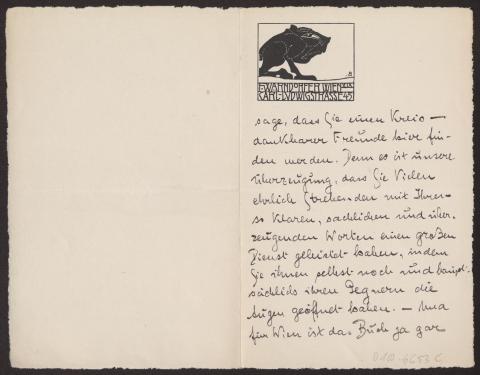 F. WÄRNDORFER WIEN XVIII.
CARL-LUDWIGSTRASSE 45
sage, dass Sie einen Kreis —
dankbarer Freunde hier fin-
den werden. Denn es ist unsere
Überzeugung, dass Sie Vielen
ehrlich Strebenden mit Ihren
so klaren, sachlichen und über-
zeugenden Worten einen großen
Dienst geleistet haben, indem
Sie ihnen selbst noch und haupt-
sächlich ihren Gegnern die
Augen geöffnet haben. — Und
für Wien ist das Buch ja gar